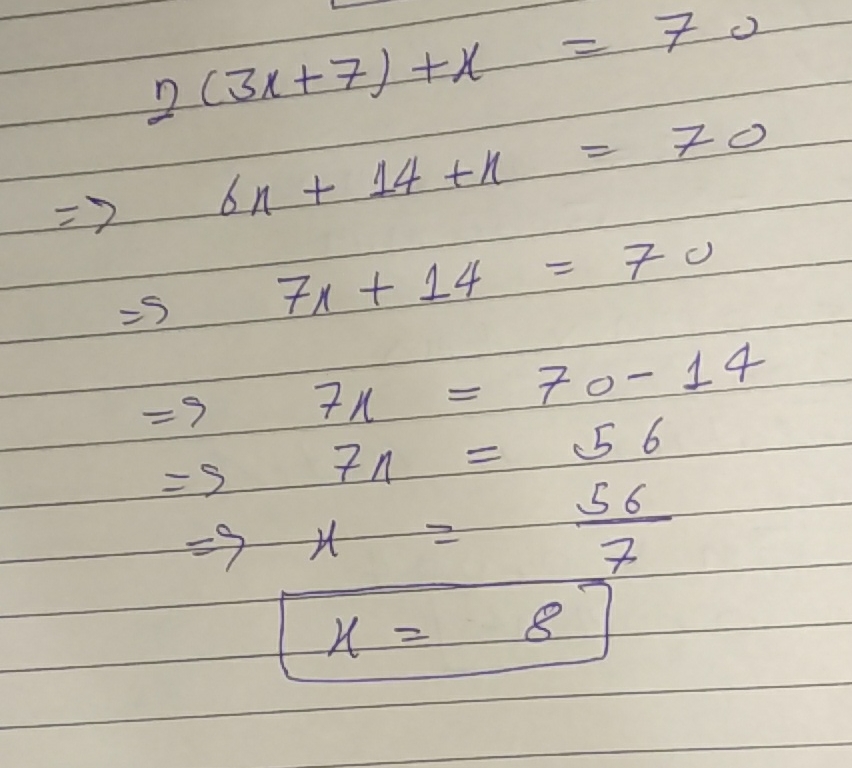 2(3x+7)+x = 70
=> 6x + 14 + x = 70
=> 7x + 14 = 70
=> 7x = 70 - 14
=> 7x = 56
=> x = 56/7
x = 8